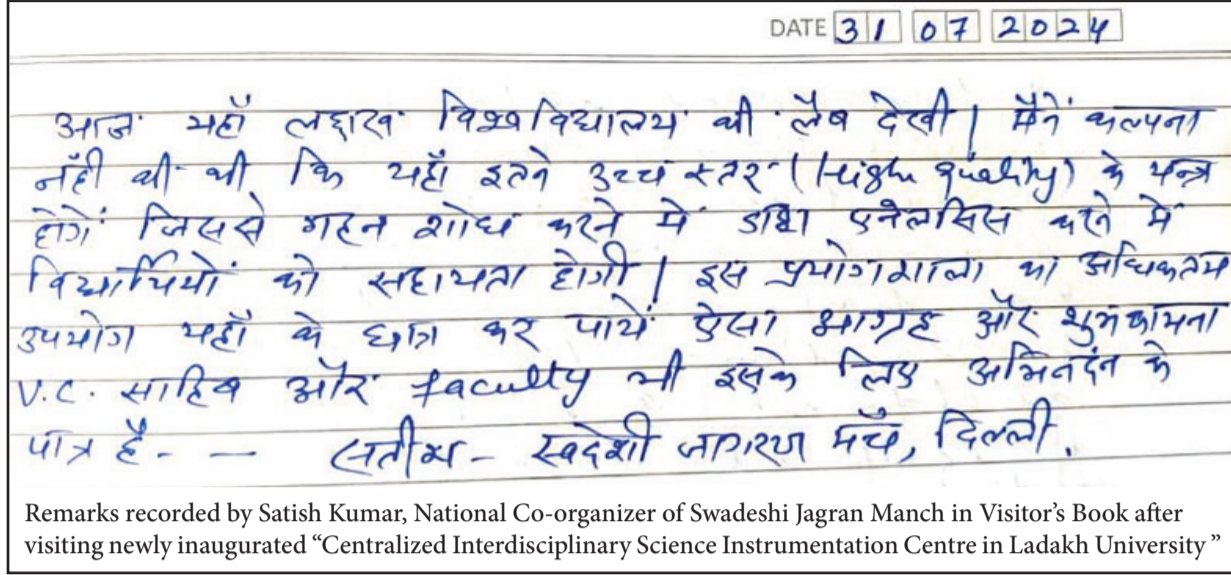 DATE 31 07 2024
आज यहाँ लद्दाख विश्वविद्यालय की लैब देखी। मैनें कल्पना
नहीं की थी कि यहाँ इतने उच्च स्तर (High Quality) के यन्त्र
होगें जिससे गहन शोध करने में डाटा एनेलसिस करने में
विद्यार्थियों को सहायता होगी। इस प्रयोगशाला का अधिकतम
उपयोग यहाँ के छात्र कर पायें ऐसा आग्रह और शुभकामना
V.C. साहिब और faculty भी इसके लिए अभिनदंन के
पात्र है. - — सतीश - स्वदेशी जागरण मँच, दिल्ली.
Remarks recorded by Satish Kumar, National Co-organizer of Swadeshi Jagran Manch in Visitor's Book after
visiting newly inaugurated “Centralized Interdisciplinary Science Instrumentation Centre in Ladakh University ”